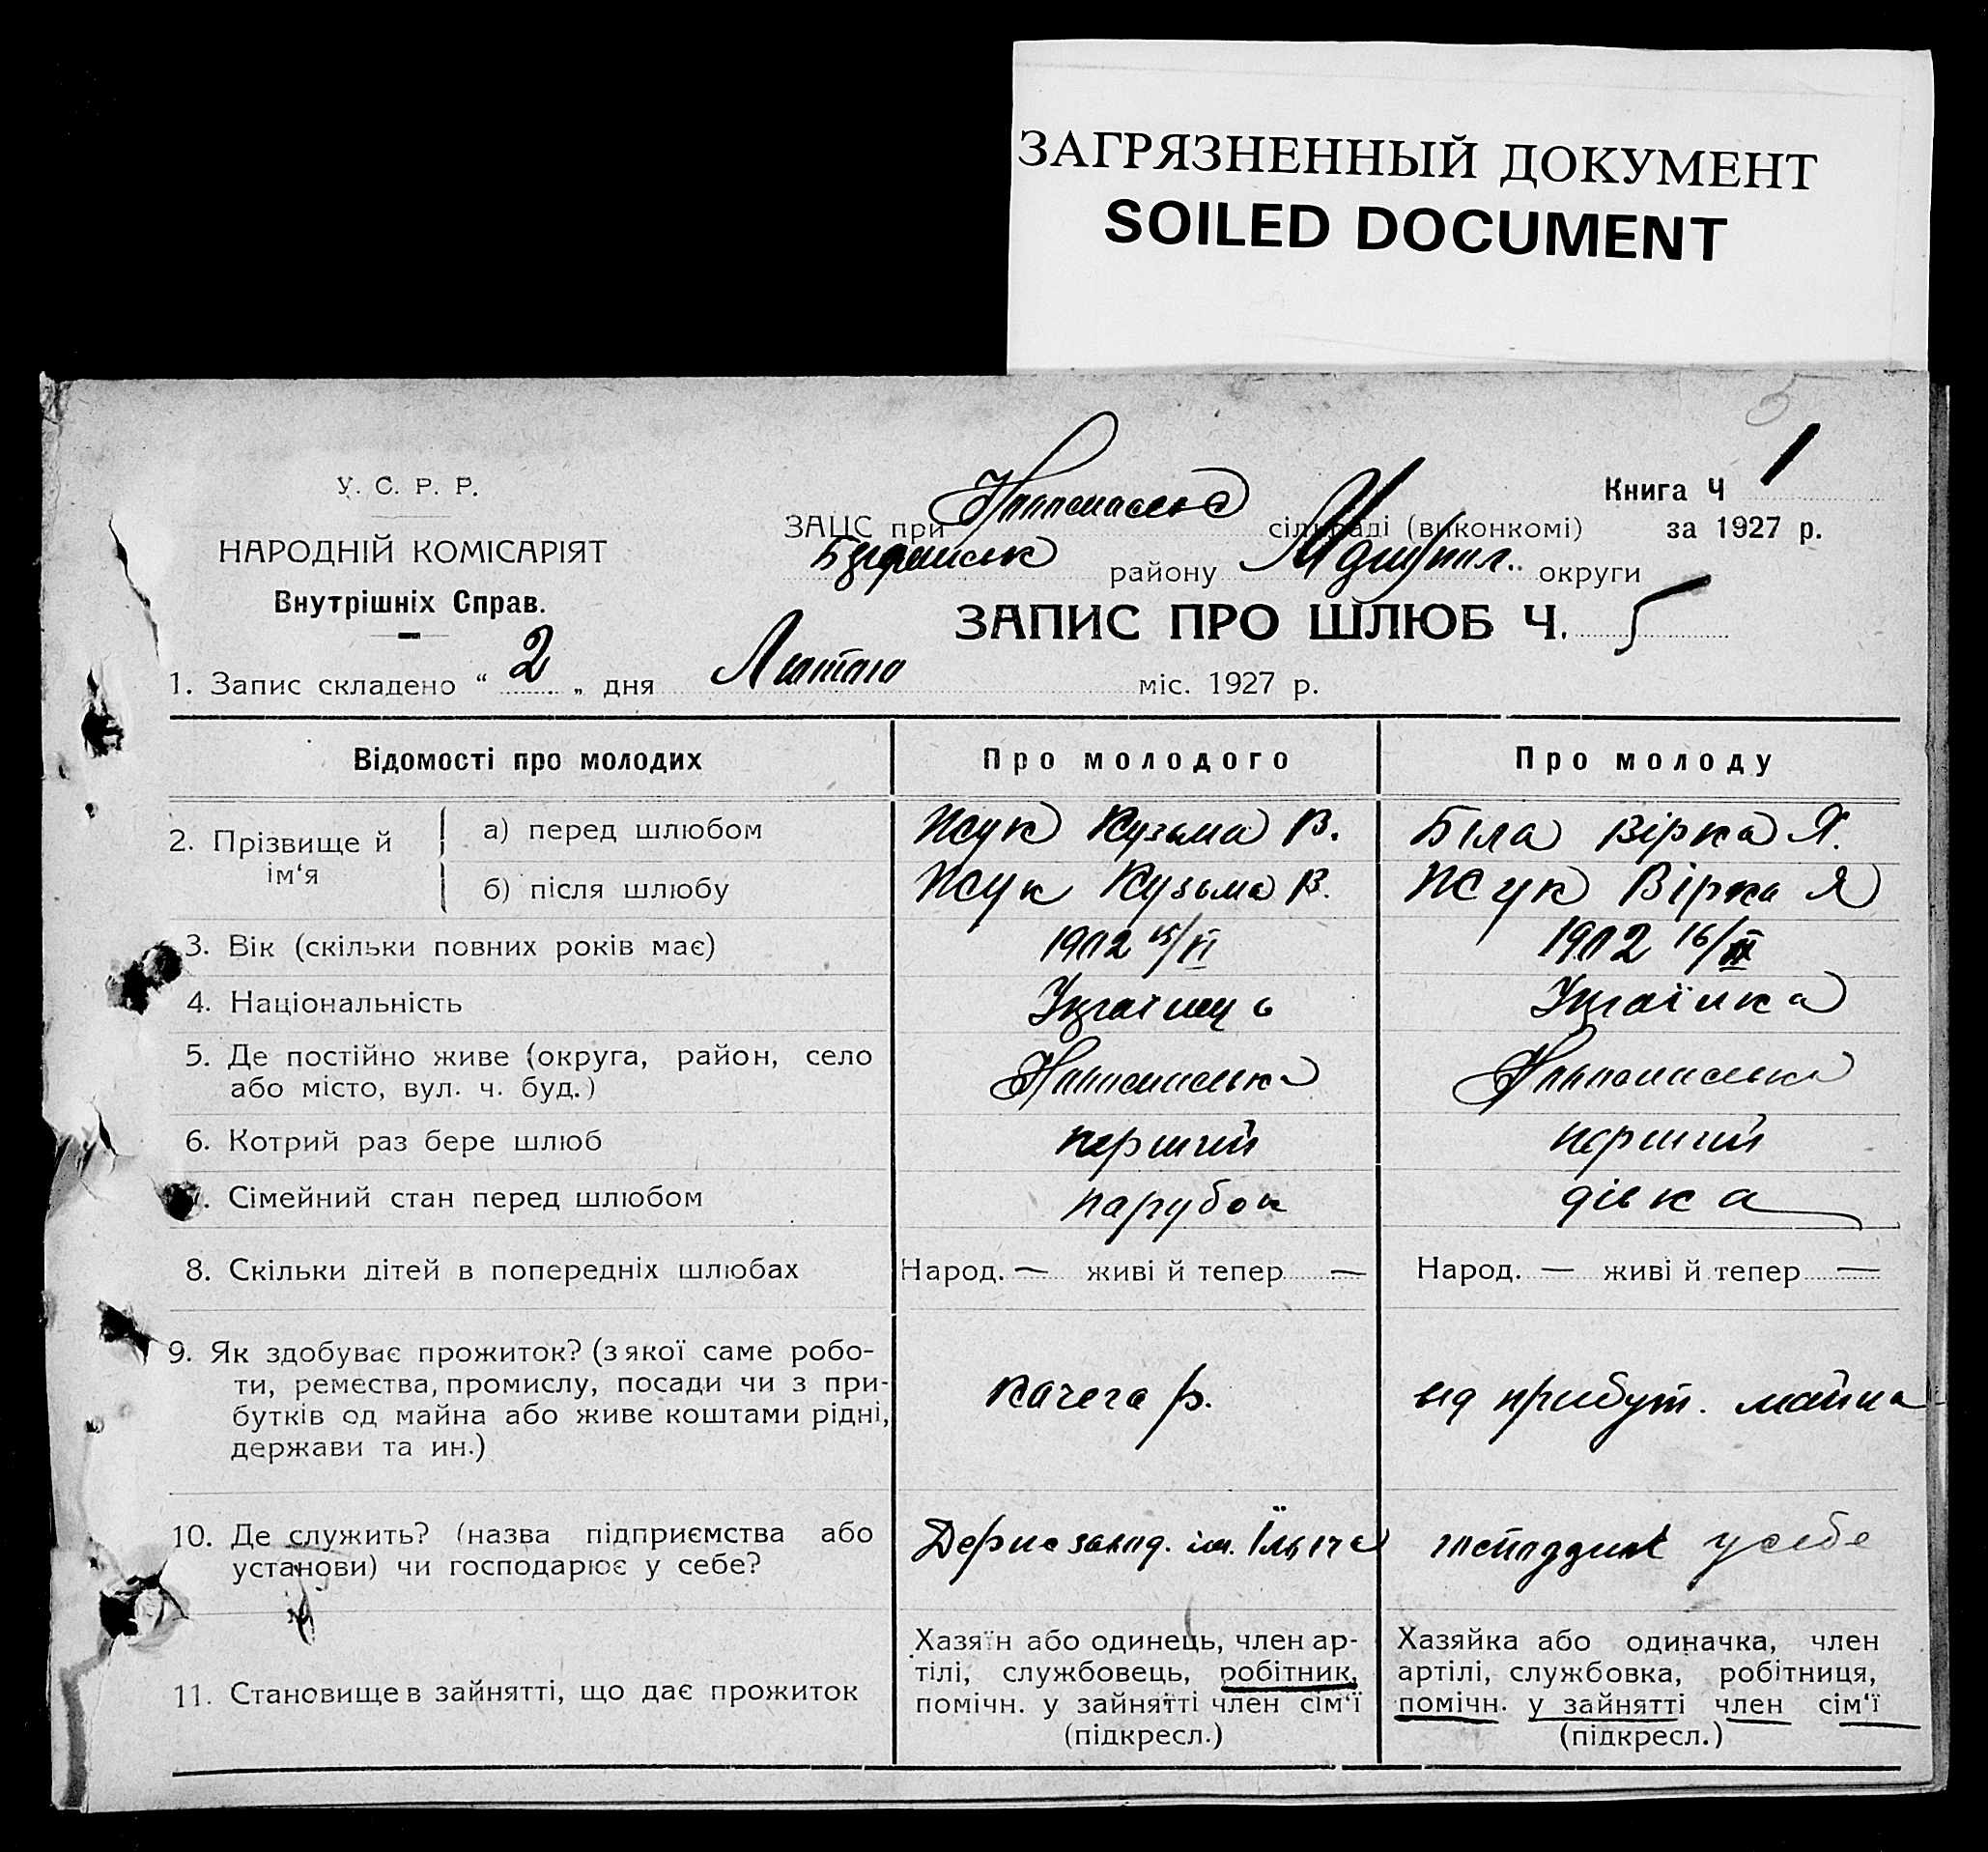 ЗАГРЯЗНЕННЫЙ ДОКУМЕНТ
SOILED DOCUMENT
5
У. С. Р. Р.
НАРОДНІЙ КОМІСАРІЯТ
Внутрішніх Справ.
Книга Ч 1
за 1927 р.
ЗАЦС при сільраді (виконкомі)
району округи
ЗАПИС ПРО ШЛЮБ Ч. 5
1. Запис складено “ 2 „ дня Лютого міс. 1927 р.
Відомості про молодих
Про молодого
Про молоду
2. Прізвище й ім‘я
а) перед шлюбом
Жук Кузьма В.
Біла Вірка Я.
б) після шлюбу
Жук Кузьма В.
Жук Вірка Я
3. Вік (скільки повних років має)
1902 15/VI
1902 16/
4. Національність
Українць
Українка
5. Де постійно живе (округа, район, село
або місто, вул. ч. буд.)
6. Котрий раз бере шлюб
перший
перший
. Сімейний стан перед шлюбом
парубок
дівка
8. Скільки дітей в попередніх шлюбах
Народ. — живі й тепер —
Народ. — живі й тепер —
9. Як здобуває прожиток? (з якої саме робо-
ти, ремества, промислу, посади чи з при-
бутків од майна або живе коштами рідні,
держави та ин.)
качега р.
від прибут. майна
10. Де служить? (назва підприємства або
установи) чи господарює у себе?
завод. ім. Ілыча
у себе
11. Становище в зайнятті, що дає прожиток
Хазяїн або одинець, член ар-
тілі, службовець, робітник,
помічн. у зайнятті член сім‘ї
(підкресл.)
Хазяйка або одиначка, член
артілі, службовка, робітниця,
помічн. у зайнятті член сім‘ї
(підкресл.)